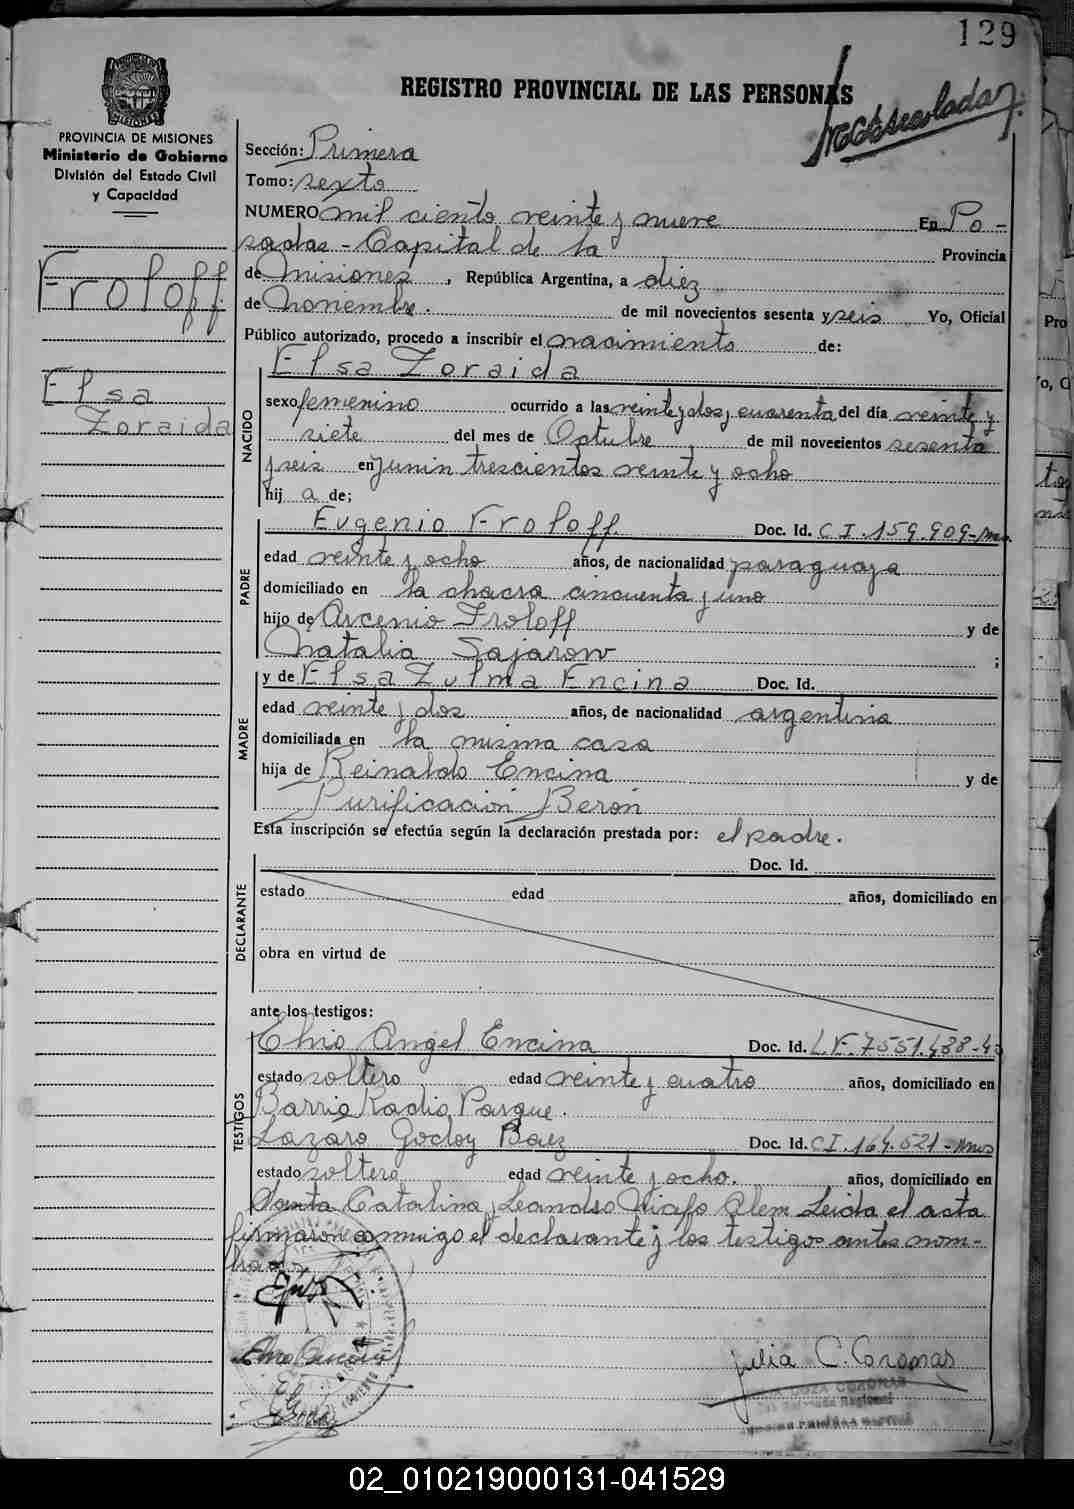 129
REGISTRO PROVINCIAL DE LAS PERSONAS
PROVINCIA DE MISIONES
Ministerio de Gobierno
División del Estado Civil
y Capacidad
Froloff
Elsa
Zoraida
Sección: Primera
Tomo: sexto
NUMERO mil ciento veinte y nueve En Po-
sadas - Capital de la Provincia
de Misiones, República Argentina, a diez
de noviembre. de mil novecientos sesenta y seis Yo, Oficial
Público autorizado, procedo a inscribir el nacimiento de:
Elsa Zoraida
NACIDO
sexo femenino ocurrido a las veinte y dos y cuarenta del día veinte y
siete del mes de Octubre de mil novecientos sesenta
y seis en Junin trescientos veinte y ocho
hij a de;
PADRE
Eugenio Froloff Doc. Id. C I. 159.909-Mns.
edad veinte y ocho años, de nacionalidad paraguaya
domiciliado en la chacra cincuenta y uno
hijo de Arcenio Froloff y de
Natalia Sajarow ;
MADRE
y de Elsa Zulma Encina Doc. Id.
edad veinte y dos años, de nacionalidad argentina
domiciliada en la misma casa
hija de Reinaldo Encina y de
Purificación Berón
Esta inscripción se efectúa según la declaración prestada por: el padre.
DECLARANTE
Doc. Id.
estado edad años, domiciliado en
obra en virtud de
ante los testigos:
TESTIGOS
Angel Encina Doc. Id. L.E. 7551.438-
estado soltero edad veinte y cuatro años, domiciliado en
Barrio Radio Parque.
Lazaro Godoy Baez Doc. Id. C I. 164.521-Mns
estado soltero edad veinte y ocho. años, domiciliado en
Santa Catalina y Leandro Alem Leida el acta
firmaron conmigo el declarante y los testigos antes nom-
brados
Julia C. Coronas
02_010219000131-041529